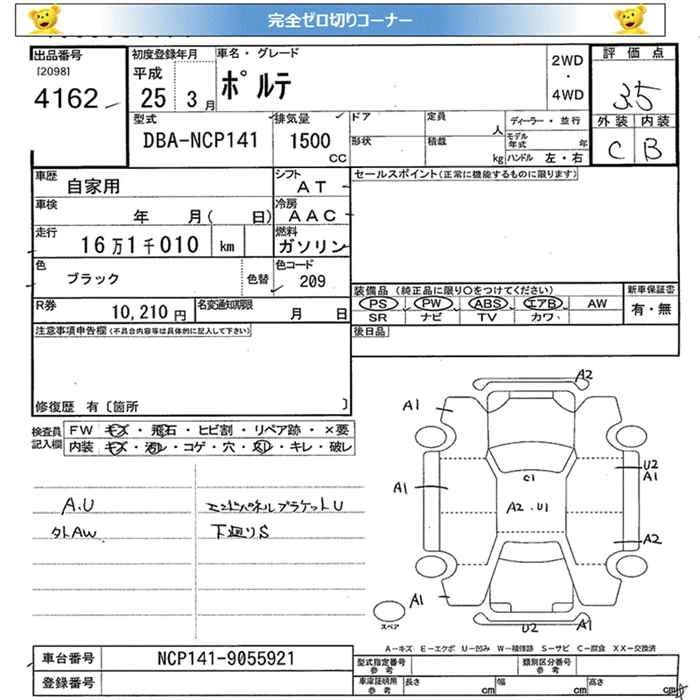 完全ゼロ切りコーナー
出品番号 初度登録年月 車名・グレード 2WD・4WD 評価点
[2098] 4162 平成 25 3月 ポルテ 3.5
型式 排気量 ドア 定員 人 ディーラー・並行 外装 内装
DBA-NCP141 1500 CC 形状 積載 kg モデル年式 年 ハンドル 左・右 C B
車歴 自家用 シフト AT セールスポイント(正常に機能するものに限ります)
車検 年 月( 日) 冷房 AAC
走行 16万1千010 km 燃料 ガソリン
色 ブラック 色替 色コード 209
装備品(純正品に限り○をつけてください) 新車保証書
PS PW ABS エアB AW 有・無
R券 10,210円 名変通知期限 月 日 SR ナビ TV カワ
注意事項申告欄(不具合内容等は具体的に記入して下さい) 後日品
修復歴 有〔箇所 〕
検査員記入欄 FW キズ・飛石・ヒビ割・リペア跡・×要
内装 キズ・汚レ・コゲ・穴・スレ・キレ・破レ
A2
A1
U2
A1
C1
A1
A2・U1
A.U エンドパネルブラケットU
外AW 下廻りS
A2
A1
A1
U2
スペア
A-キズ E-エクボ U-凹み W-補修跡 S-サビ C-腐食 XX-交換済
車台番号 NCP141-9055921 型式指定番号 参考 類別区分番号 参考
登録番号 車庫証明用 参考 長さ cm 幅 cm 高さ cm